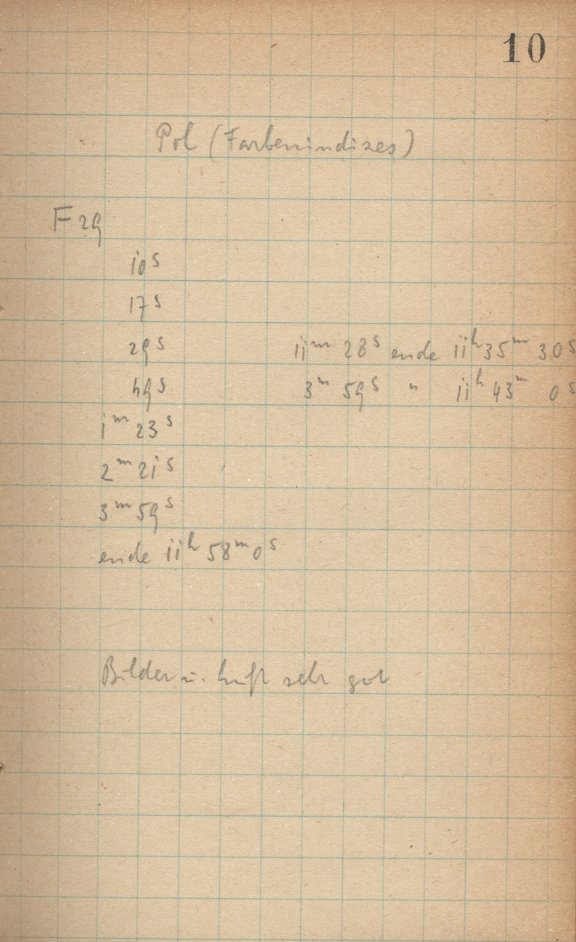 10
Pol (Farbenindizes)
F 29
10s
17s
29s 11m 28s ende 11h 35m 30s
49s 3m 59s " 11h 43m 0s
1m 23s
2m 21s
3m 59s
ende 11h 58m 0s
Bilder u. Luft sehr gut